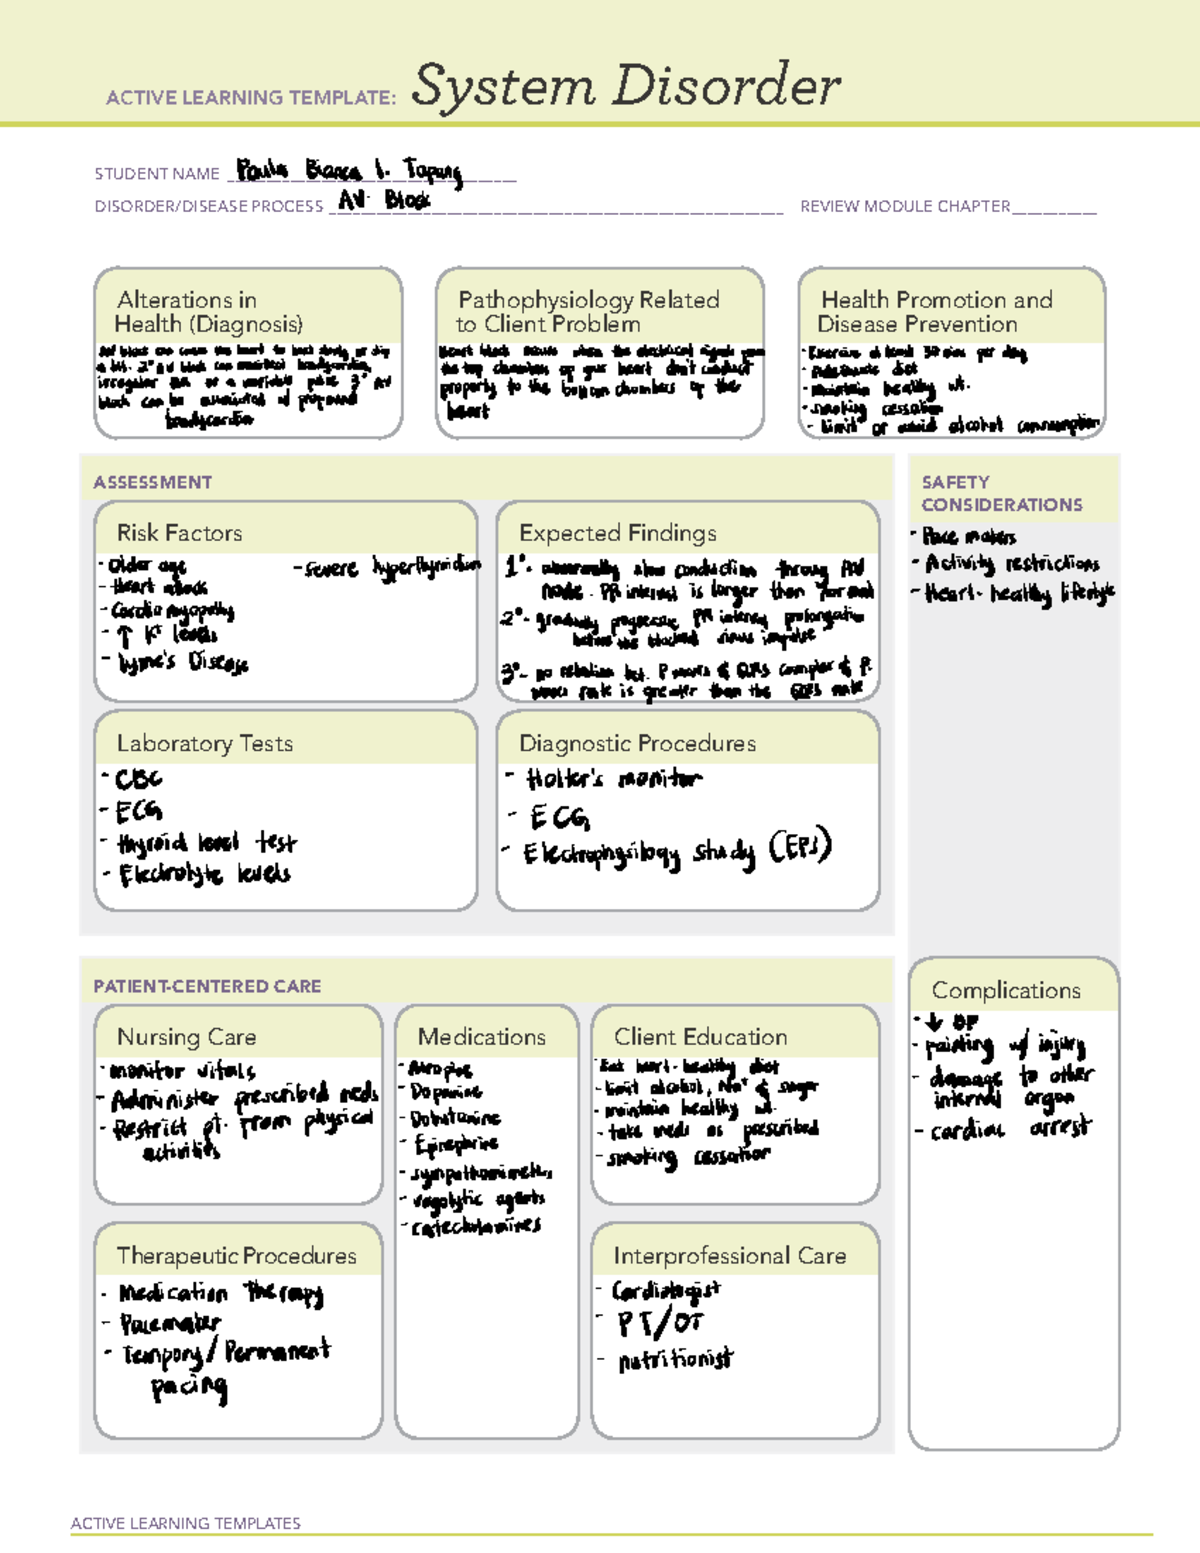 ACTIVE LEARNING TEMPLATE: System Disorder
STUDENT NAME Paula Bianca I.
DISORDER/DISEASE PROCESS AV Block REVIEW MODULE CHAPTER
Alterations in
Health (Diagnosis)
AV block can cause the heart to beat slowly or skip
a bit. 2° AV block can manifest bradycardia,
irregular or a variable pulse 3° AV
block can be associated w/ profound
bradycardia
Pathophysiology Related
to Client Problem
Heart block occurs when the electrical signals from
the top chambers of your heart don't conduct
properly to the bottom chambers of the
heart
Health Promotion and
Disease Prevention
- Exercise at least 30 mins per day
- Adequate diet
- Maintain healthy wt.
- smoking cessation
- limit or avoid alcohol consumption
ASSESSMENT
SAFETY
CONSIDERATIONS
- Pace makers
- Activity restrictions
- Heart-healthy lifestyle
Risk Factors
- Older age
- Heart attack
- Cardiomyopathy
- ↑ K+ levels
- Lyme's Disease
- severe
Expected Findings
1°- abnormally slow conduction through AV
node. PR interval is longer than normal
2°- gradually progressive PR interval prolongation
before the blocked sinus impulse
3°- no relation bet. P waves & QRS complex & P
waves rate is greater than the QRS rate
Laboratory Tests
- CBC
- ECG
- thyroid level test
- Electrolyte levels
Diagnostic Procedures
- Holter's monitor
- ECG
- Electrophysilogy study (EPS)
PATIENT-CENTERED CARE
Complications
- ↓ BP
- painting w/ injury
- damage to other
internal organ
- cardiac arrest
Nursing Care
- monitor vitals
- Administer prescribed meds
- Restrict pt. from physical
activities
Medications
- Atropine
- Dopamine
- Dobutamine
- Epinephrine
- vagolytic agents
- catecholamines
Client Education
- Eat heart-healthy diet
- limit alcohol, Na+ & sugar
- maintain healthy wt.
- take meds as prescribed
- smoking cessation
Therapeutic Procedures
- Medication therapy
- Pacemaker
- Tempory/Permanent
pacing
Interprofessional Care
- Cardiologist
- PT/OT
- nutritionist
ACTIVE LEARNING TEMPLATES